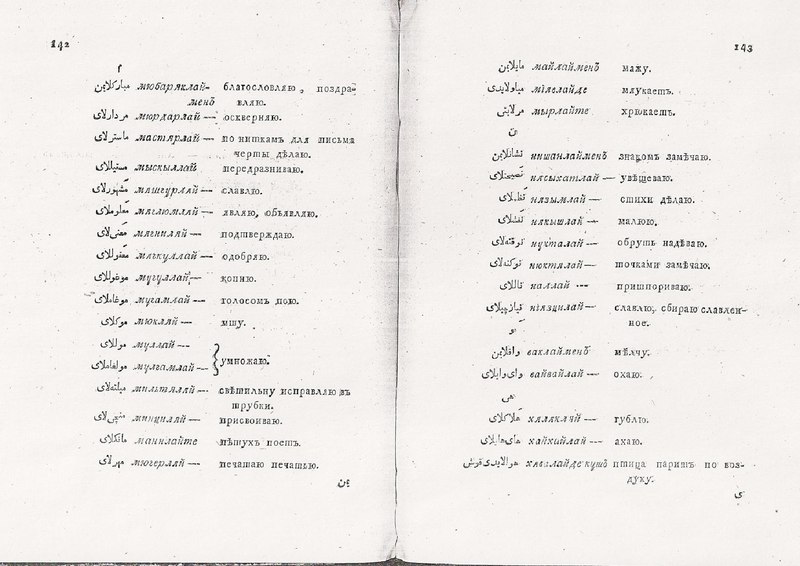 142
م
مباركلاين мюбаряклай- благословляю, поздра-
менъ вляю.
مردارلاى мюрдарлай — оскверняю.
ماسترلاى мастярлай — по ниткам для письма
черты дѣлаю.
مسقيللاى мыскыллай передразниваю.
مشهورلاى мяшгурляй — славлю.
معلوملاى мяглюмляй — являю, объявляю.
معنى لاى мягниляй — подтверждаю.
معقوللاى мягкулляй — одобряю.
موغوللاى мугуллай — копню.
موغاملاى мугамлай — голосом пою.
موكلاى мюкляй — мшу.
موللاى муллай —
умножаю.
مولغاملاى мулгамлай —
ميلتهلاى мильтяляй — свѣтильну исправляю въ
трубки.
منچىلاى минциляй — присвоиваю.
مانكلاى манилайте пѣтухъ поетъ.
مهرلاى мюгерляй — печатаю печатью.
ين
143
مايلاين майлайменъ мажу.
مياولايدى мілелайде мяукаетъ.
مرلايتى мырлайте хрюкаетъ.
ن
نشانلاين нишанлайменъ знаком замѣчаю.
نصيحتلاى нясыхатлай — увѣщеваю.
نظملاى нязымлай — стихи дѣлаю.
نقشلاى някышлай — малюю.
نوقتهلاى нухталай — обруть надѣваю.
نوكتهلاى нюктялай — точками замѣчаю.
ناللاى наллай — пришпориваю.
نيازچيلاى ніязцилай — славлю, сбираю славлен-
ное.
و
واقلاين ваклайменъ мѣлчу.
واى وايلاى вайвайлай — охаю.
هى
هلاكلاى хялякляй — гублю.
هاى هايلاى хайхайлай — ахаю.
هوالايدى قوش хавалайде кушъ птица паритъ по воз-
духу.
ى